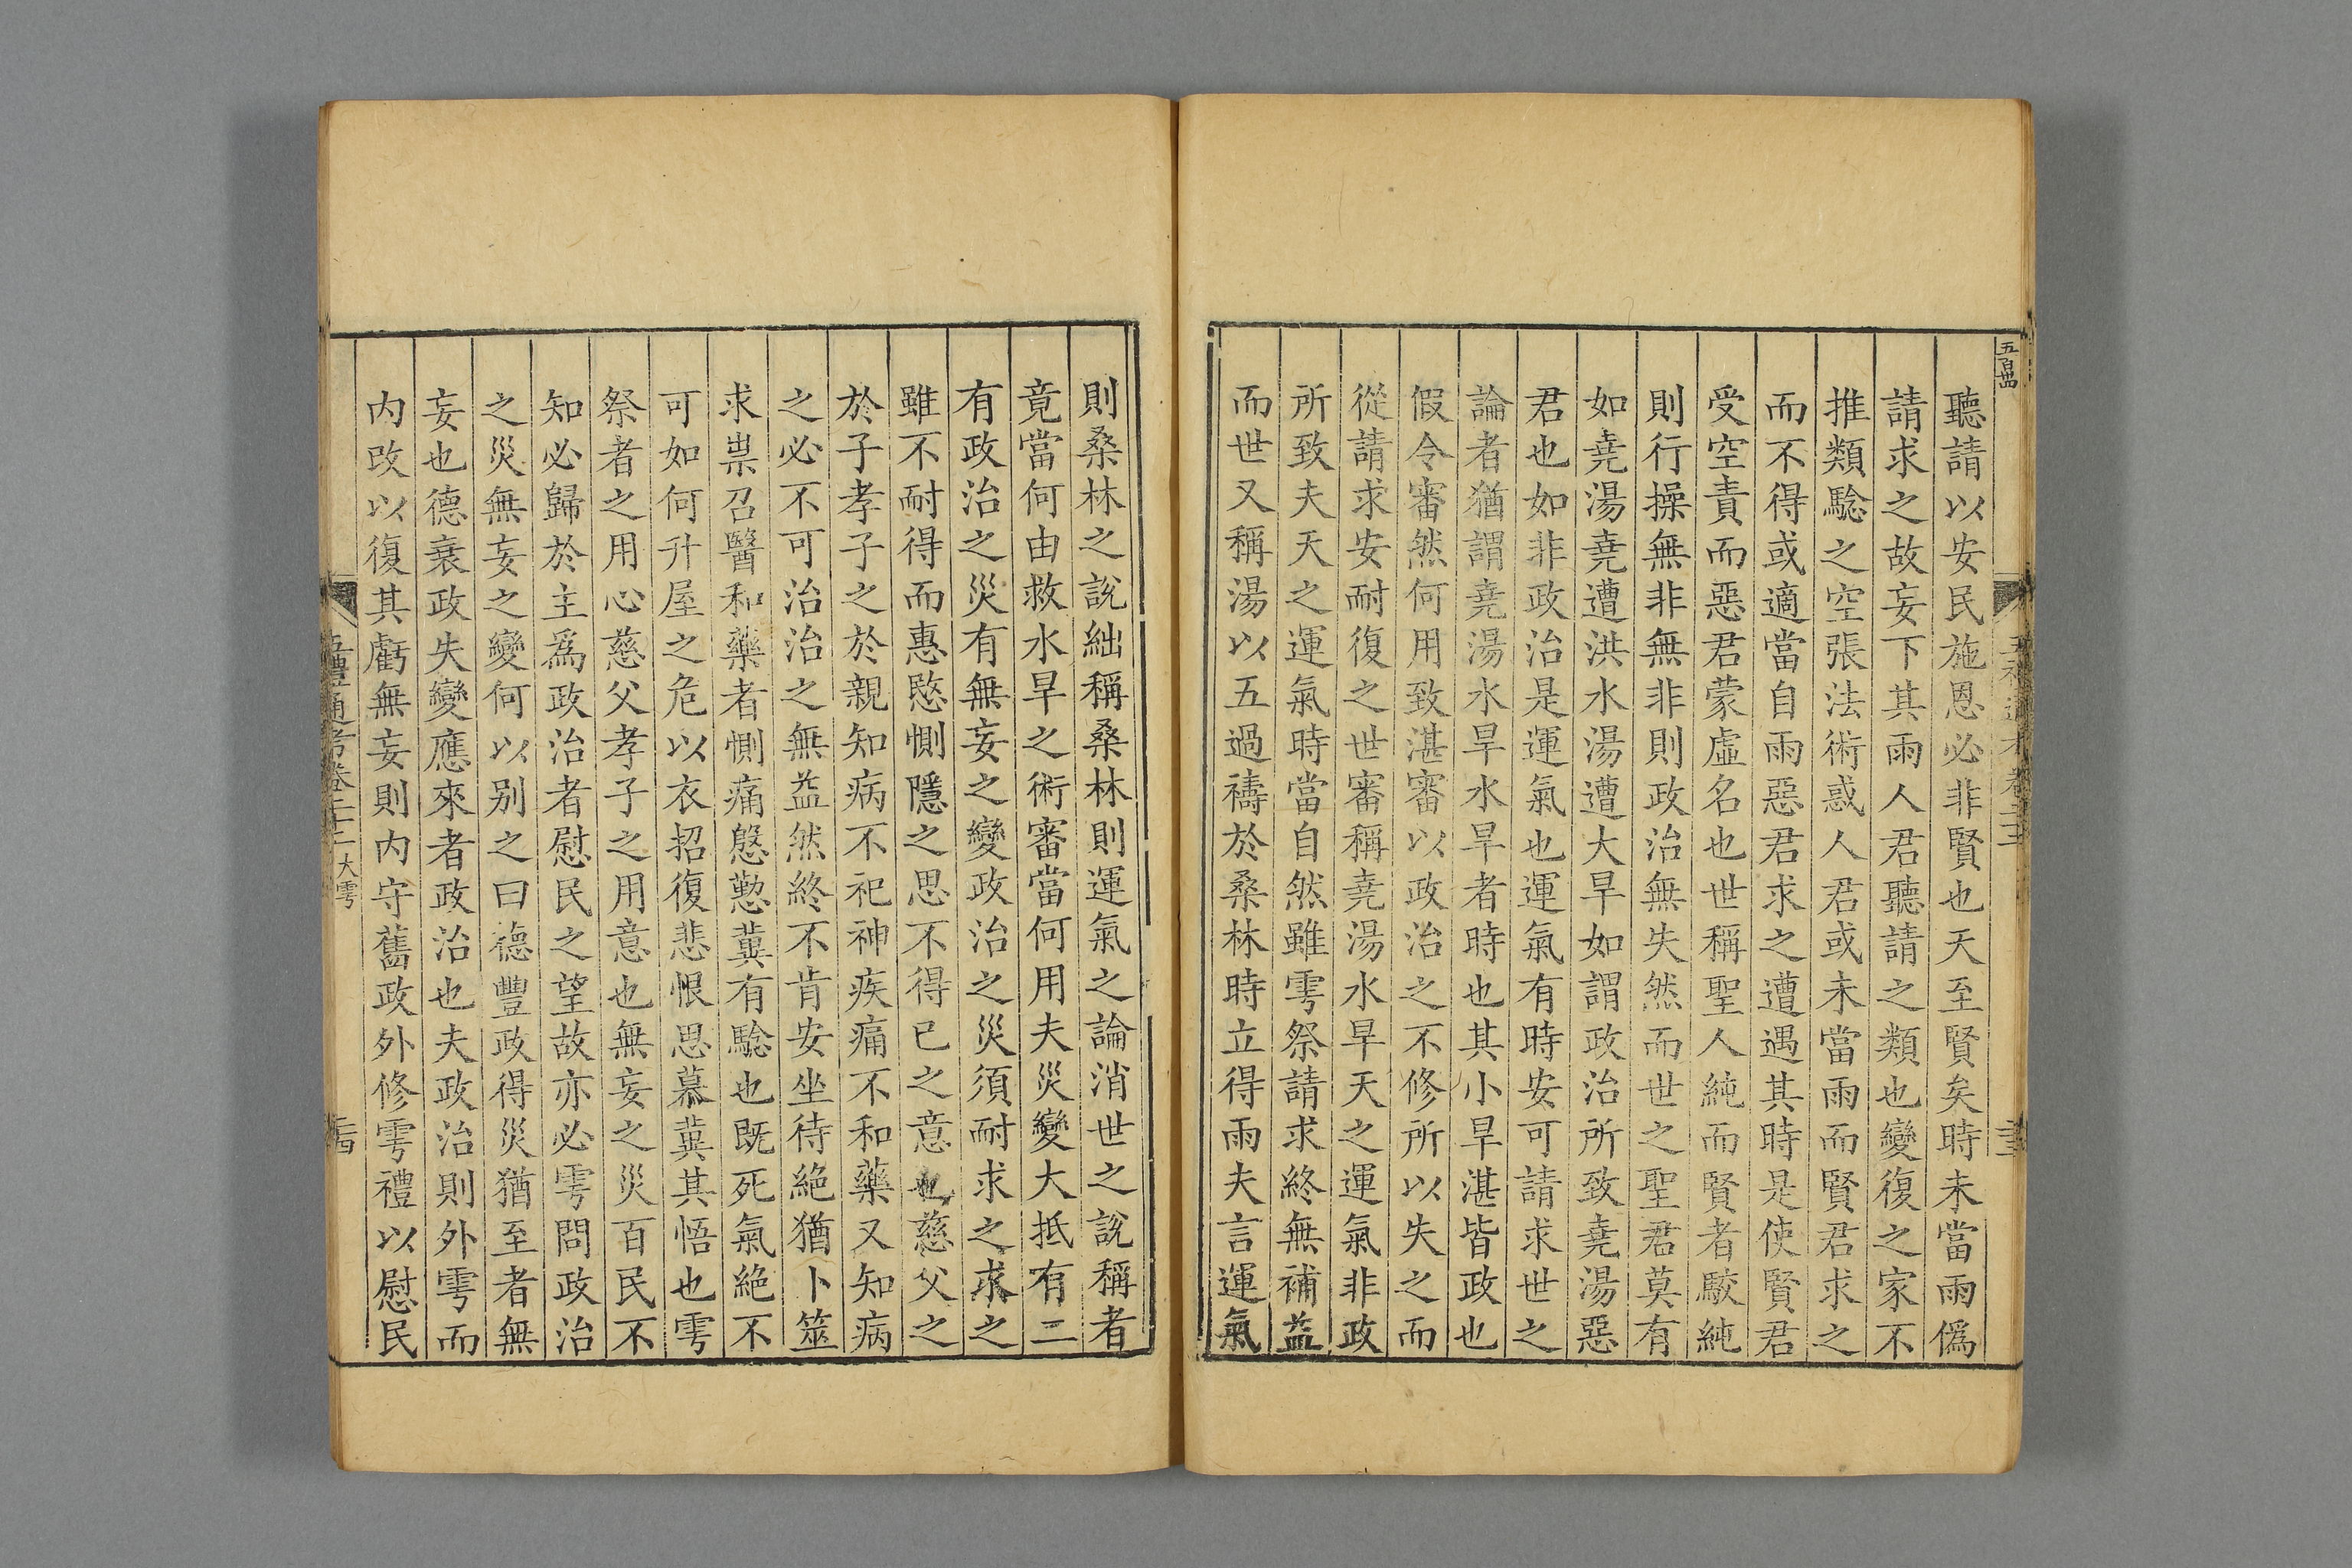 聽請以安民施恩必非賢也天至賢矣時未當雨僞
請求之故妄下其雨人君聽請之類也變復之家不
推類驗之空張法術惑人君或未當雨而賢君求之
而不得或適當自雨惡君求之遭遇其時是使賢君
受空責而惡君蒙虛名也世稱聖人純而賢者駮純
則行操無非無非則政治無失然而世之聖君莫有
如堯湯堯遭洪水湯遭大旱如謂政治所致堯湯惡
君也如非政治是運氣也運氣有時安可請求世之
論者猶謂堯湯水旱水旱者時也其小旱湛皆政也
假令審然何用致湛審以政治之不修所以失之而
從請求安耐復之世審稱堯湯水旱天之運氣非政
所致夫天之運氣時當自然雖雩祭請求終無補益
而世又稱湯以五過禱於桑林時立得雨夫言運氣
則桑林之說絀稱桑林則運氣之論消世之說稱者
竟當何由救水旱之術審當何用夫災變大抵有二
有政治之災有無妄之變政治之災須耐求之求之
雖不耐得而惠愍惻隱之思不得已之意也慈父之
於子孝子之於親知病不祀神疾痛不和藥又知病
之必不可治治之無益然終不肯安坐待絶猶卜筮
求祟召醫和藥者惻痛慇懃冀有驗也既死氣絶不
可如何升屋之危以衣招復悲恨思慕冀其悟也雩
祭者之用心慈父孝子之用意也無妄之災百民不
知必歸於主爲政治者慰民之望故亦必雩問政治
之災無妄之變何以别之曰德豐政得災猶至者無
妄也德衰政失變應來者政治也夫政治則外雩而
内改以復其虧無妄則内守舊政外修雩禮以慰民
五禮通考卷二十二 大雩